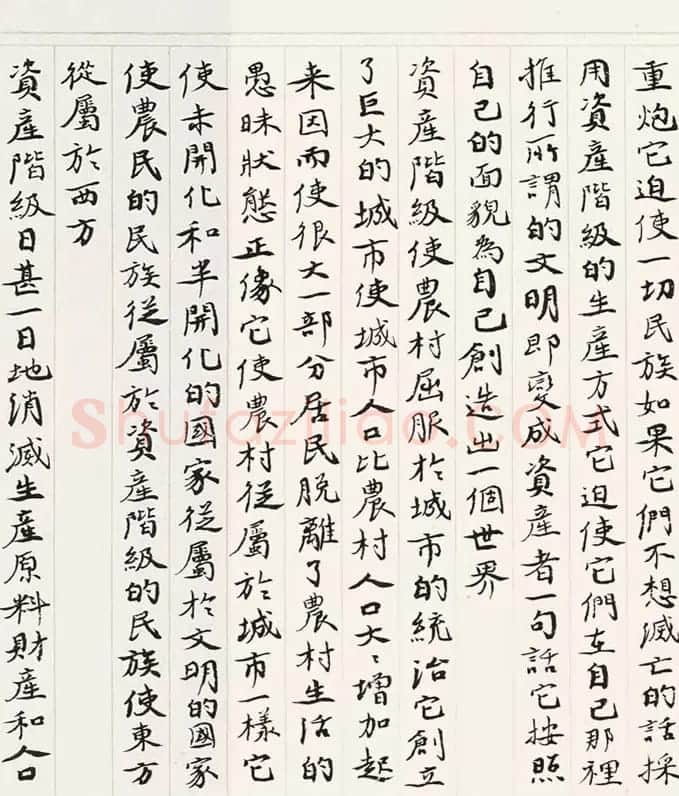 重炮它迫使一切民族如果它們不想滅亡的話採
用資產階級的生產方式它迫使它們在自己那裡
推行所謂的文明即變成資產者一句話它按照
自己的面貌為自己創造出一個世界
資產階級使農村屈服於城市的統治它創立
了巨大的城市使城市人口比農村人口大〻增加起
来因而使很大一部分居民脫離了農村生活的
愚昧狀態正像它使農村從屬於城市一樣它
使未開化和半開化的國家從屬於文明的國家
使農民的民族從屬於資產階級的民族使東方
從屬於西方
資產階級日甚一日地消滅生產原料財產和人口
Shufaziliao.COM